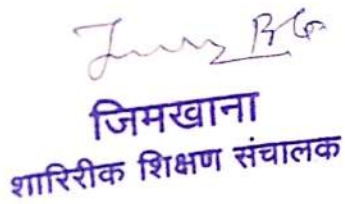 जिमखाना
शारिरीक शिक्षण संचालक